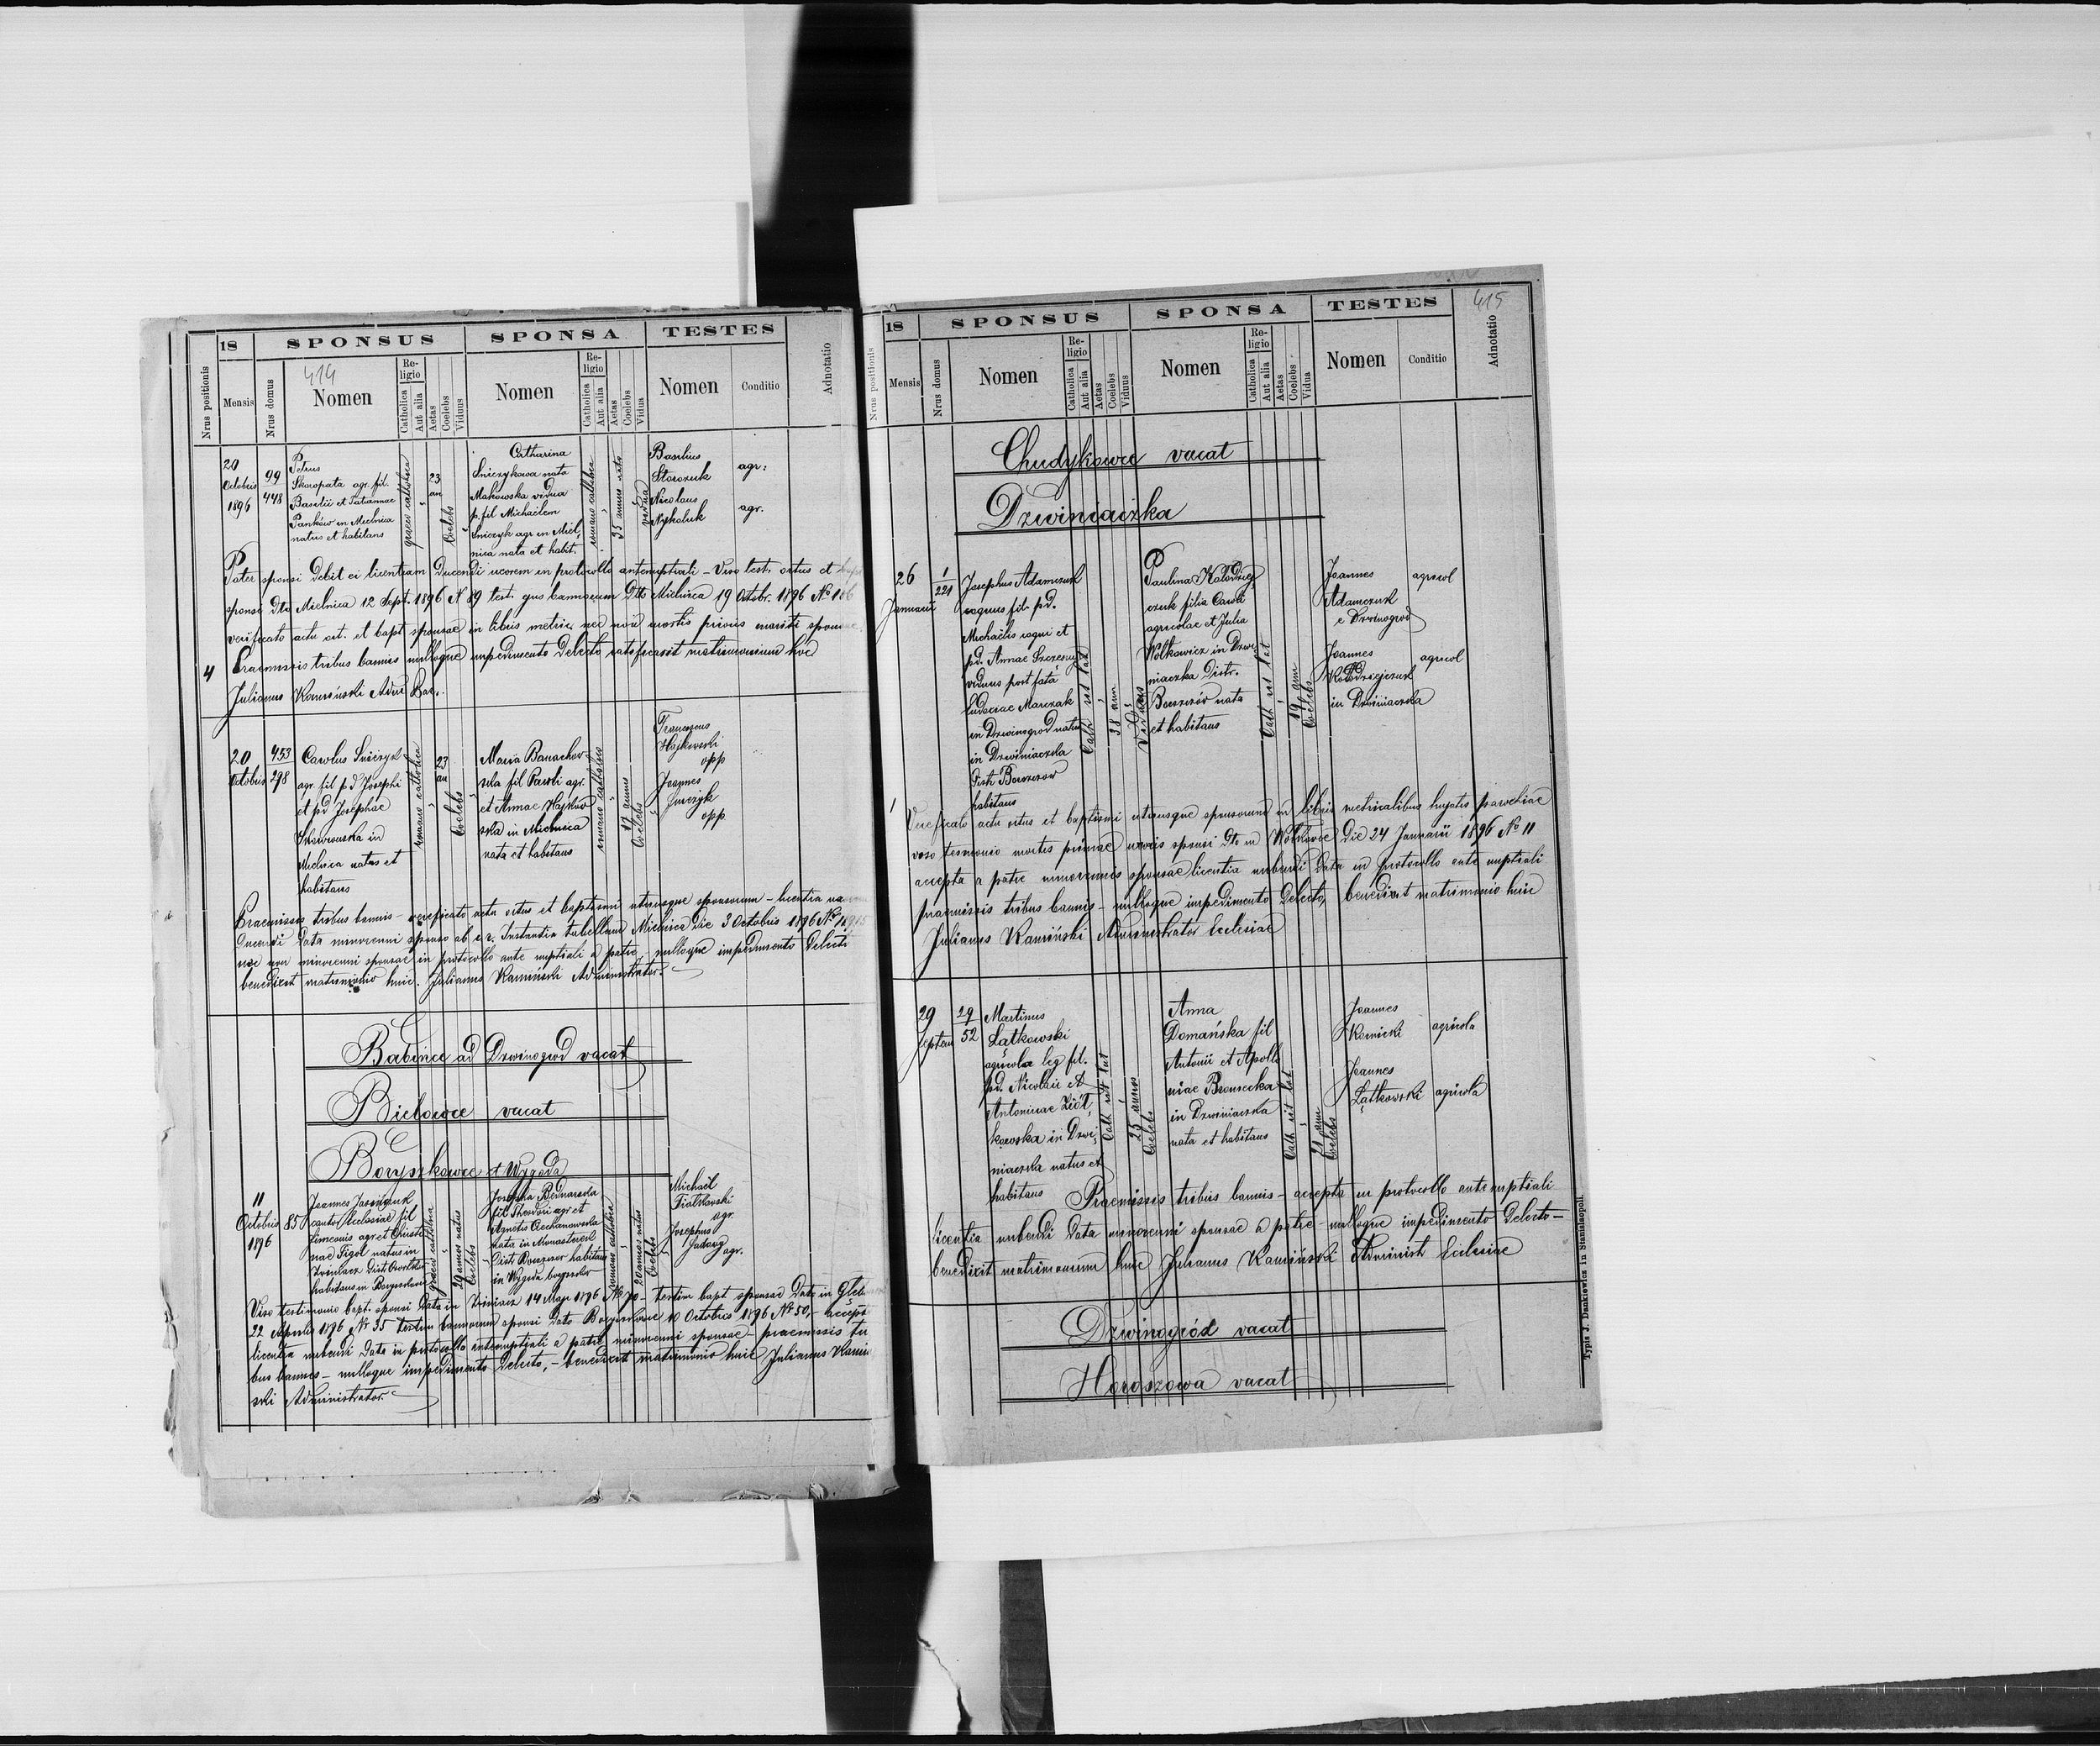 Nrus positionis
18
Mensis
Nrus domus
SPONSUS
414
Nomen
Religio
Catholica
Aut alia
Aetas
Coelebs
Viduus
SPONSA
Nomen
Religio
Catholica
Aut alia
Aetas
Coelebs
Vidua
TESTES
Nomen
Conditio
Adnotatio
20
Octobris
1896
99
448
Petrus
Skoropata agr. fil.
Basilii et Tatiannae
Panków in Mielnica
natus et habitans
graeco catholica
23
an
Coelebs
Catharina
Sniezykowa nata
Makowska vidua
p. fil Michaëlem
Sniezyk agr in Miel
nica nata et habit.
romano catholica
35 annos nata
vidua
Basilius
Storozuk
agr:
Nicolaus
Nykoluk
agr.
Pater sponsi dedit ei licentiam ducendi uxorem in protocollo antenuptiali – Viso test. ortus et
sponsi dto Mielnica 12 Sept. 1896 N 89 test. bannorum dto Mielnica 19 Octobr. 1896 No 106
verificato actu ort. et bapt sponsae in libris metric. nec non mortis prioris mariti sponsae
4 Praemissis tribus bannis nulloque impedimento detecto matrimonium hoc
Julianus Kamiński Adm
20
Octobris
453
298
Carolus Sniezyk
agr. fil pd Josephi
et pd Josephae
in
Mielnica natus et
habitans
romano catholica
23
an
Coelebs
Maria Banachow
ska fil Pauli agr.
et Annae Hajkow
ska in Mielnica
nata et habitans
romano catholica
17 annus
Coelebs
Franciscus
Hajkowski
opp
Joannes
Jurczyk
opp
Praemissis tribus bannis – verificato actu ortus et baptismi utriusque sponsorum – licentia
ducendi data minorenni sponso ab Instantia tabellum Mielnica die 3 Octobris 1896 No
nec non minorenni sponsae in protocollo ante nuptiali a patre, nulloque impedimento detecto
benedixit matrimonio huic. Julianus Kamiński Administrator.
Babince ad Dzwinogrod vacat
Bielowce vacat
Boryszkowce et Wygoda
11
Octobris
1896
85
Joannes
cantor Ecclesiae fil
Simeonis agr et Christi
nae Figol natus in
habitans in
graeco catholica
29 annos natus
Coelebs
Josepha Bednarska
fil Theodori agr et
Agnetis Ciechanowska
nata in
Distr Borszczow habitans
in Wygoda
romano catholica
20 annos natus
Coelebs
Michaël
Fialkowski
agr.
Josephus
agr.
Viso testimonio bapt. sponsi data in 14 Maji 1896 No 70 – testim bapt sponsae dato in
22 Aprilis 1896 Nr 35 testim bannorum sponsi dato 10 Octobris 1896 No 50, – accepta
licentia nubendi data in protocollo antenuptiali a patre minorenni sponsae – praemissis tri
bus bannis – nulloque impedimento detecto, – benedixit matrimonio huic Julianus Kamiń
ski Administrator.
Nrus positionis
18
Mensis
Nrus domus
SPONSUS
Nomen
Religio
Catholica
Aut alia
Aetas
Coelebs
Viduus
SPONSA
Nomen
Religio
Catholica
Aut alia
Aetas
Coelebs
Vidua
TESTES
Nomen
Conditio
Adnotatio
415
Chudykowce vacat
Dzwiniaczka
26
Januarii
1
221
Josephus Adamczuk
coquus fil pd.
Michaëlis coqui et
pd. Annae
viduus post fata
Ludovicae Marczak
in Dzwinogrod natus
in Dzwiniaczka
Distr Borszczow
habitans
Cath rit lat
38 ann
Viduus
Paulina Kołodziej
czuk filia Caroli
agricolae et Julia
Wołkowicz in Dzwi
niaczka Distr.
Borszczów nata
et habitans
Cath rit lat
19 ann
Coelebs
Joannes
Adamczuk
e Dzwinogrod
agricol
Joannes
Kołodziejczuk
in Dzwiniaczka
agricol
1
Verificato actu ortus et baptismi utriusque sponsorum in libris metricalibus hujatis parochiae
viso testimonio mortis primae uxoris sponsi dto in Wołkowce die 24 Januarii 1896 No 11
accepta a patre minorennis sponsae licentia nubendi data in protocollo ante nuptiali
praemissis tribus bannis – nulloque impedimento detecto, benedixit matrimonio huic
Julianus Kamiński Administrator Ecclesiae
29
Septem
29
52
Martinus
Łatkowski
agricola leg fil.
pd. Nicolai et
Antoninae Ziół
kowska in Dzwi
niaczka natus et
habitans
Cath rit lat
25 annos
Coelebs
Anna
Domańska fil
Antonii et Apollo
niae
in Dzwiniaczka
nata et habitans
Cath rit lat
21 ann
Coelebs
Joannes
Kornicki
agricola
Joannes
Łatkowski
agricola
Praemissis tribus bannis – accepta in protocollo antenuptiali
licentia nubendi data minorenni sponsae a patre – nulloque impedimento detecto –
benedixit matrimonium huic Julianus Kamiński Administr Ecclesiae
Dzwinogród vacat
Horoszowa vacat
Typis J. Dankiewicz in Stanislaopoli.